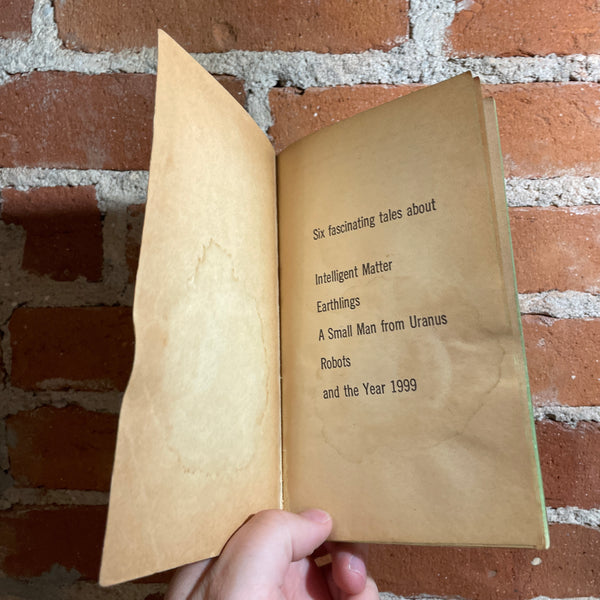 Six fascinating tales about
Intelligent Matter
Earthlings
A Small Man from Uranus
Robots
and the Year 1999